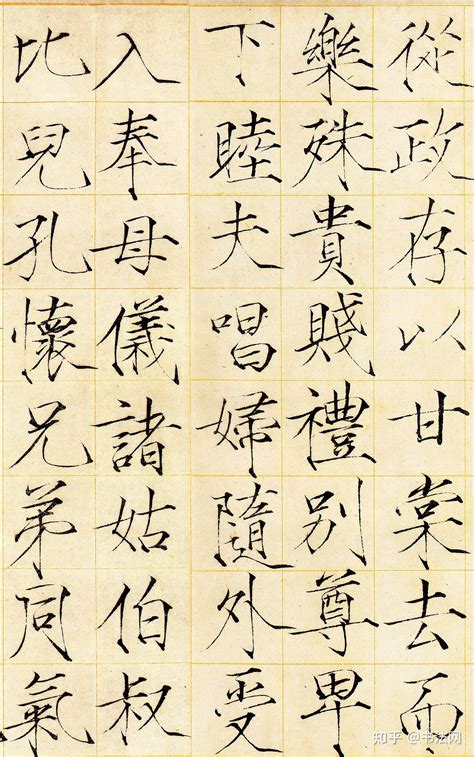 從政存以甘棠去而
樂殊貴賤禮別尊卑
下睦夫唱婦隨外受
入奉母儀諸姑伯叔
比兒孔懷兄弟同氣
知乎 @书法网